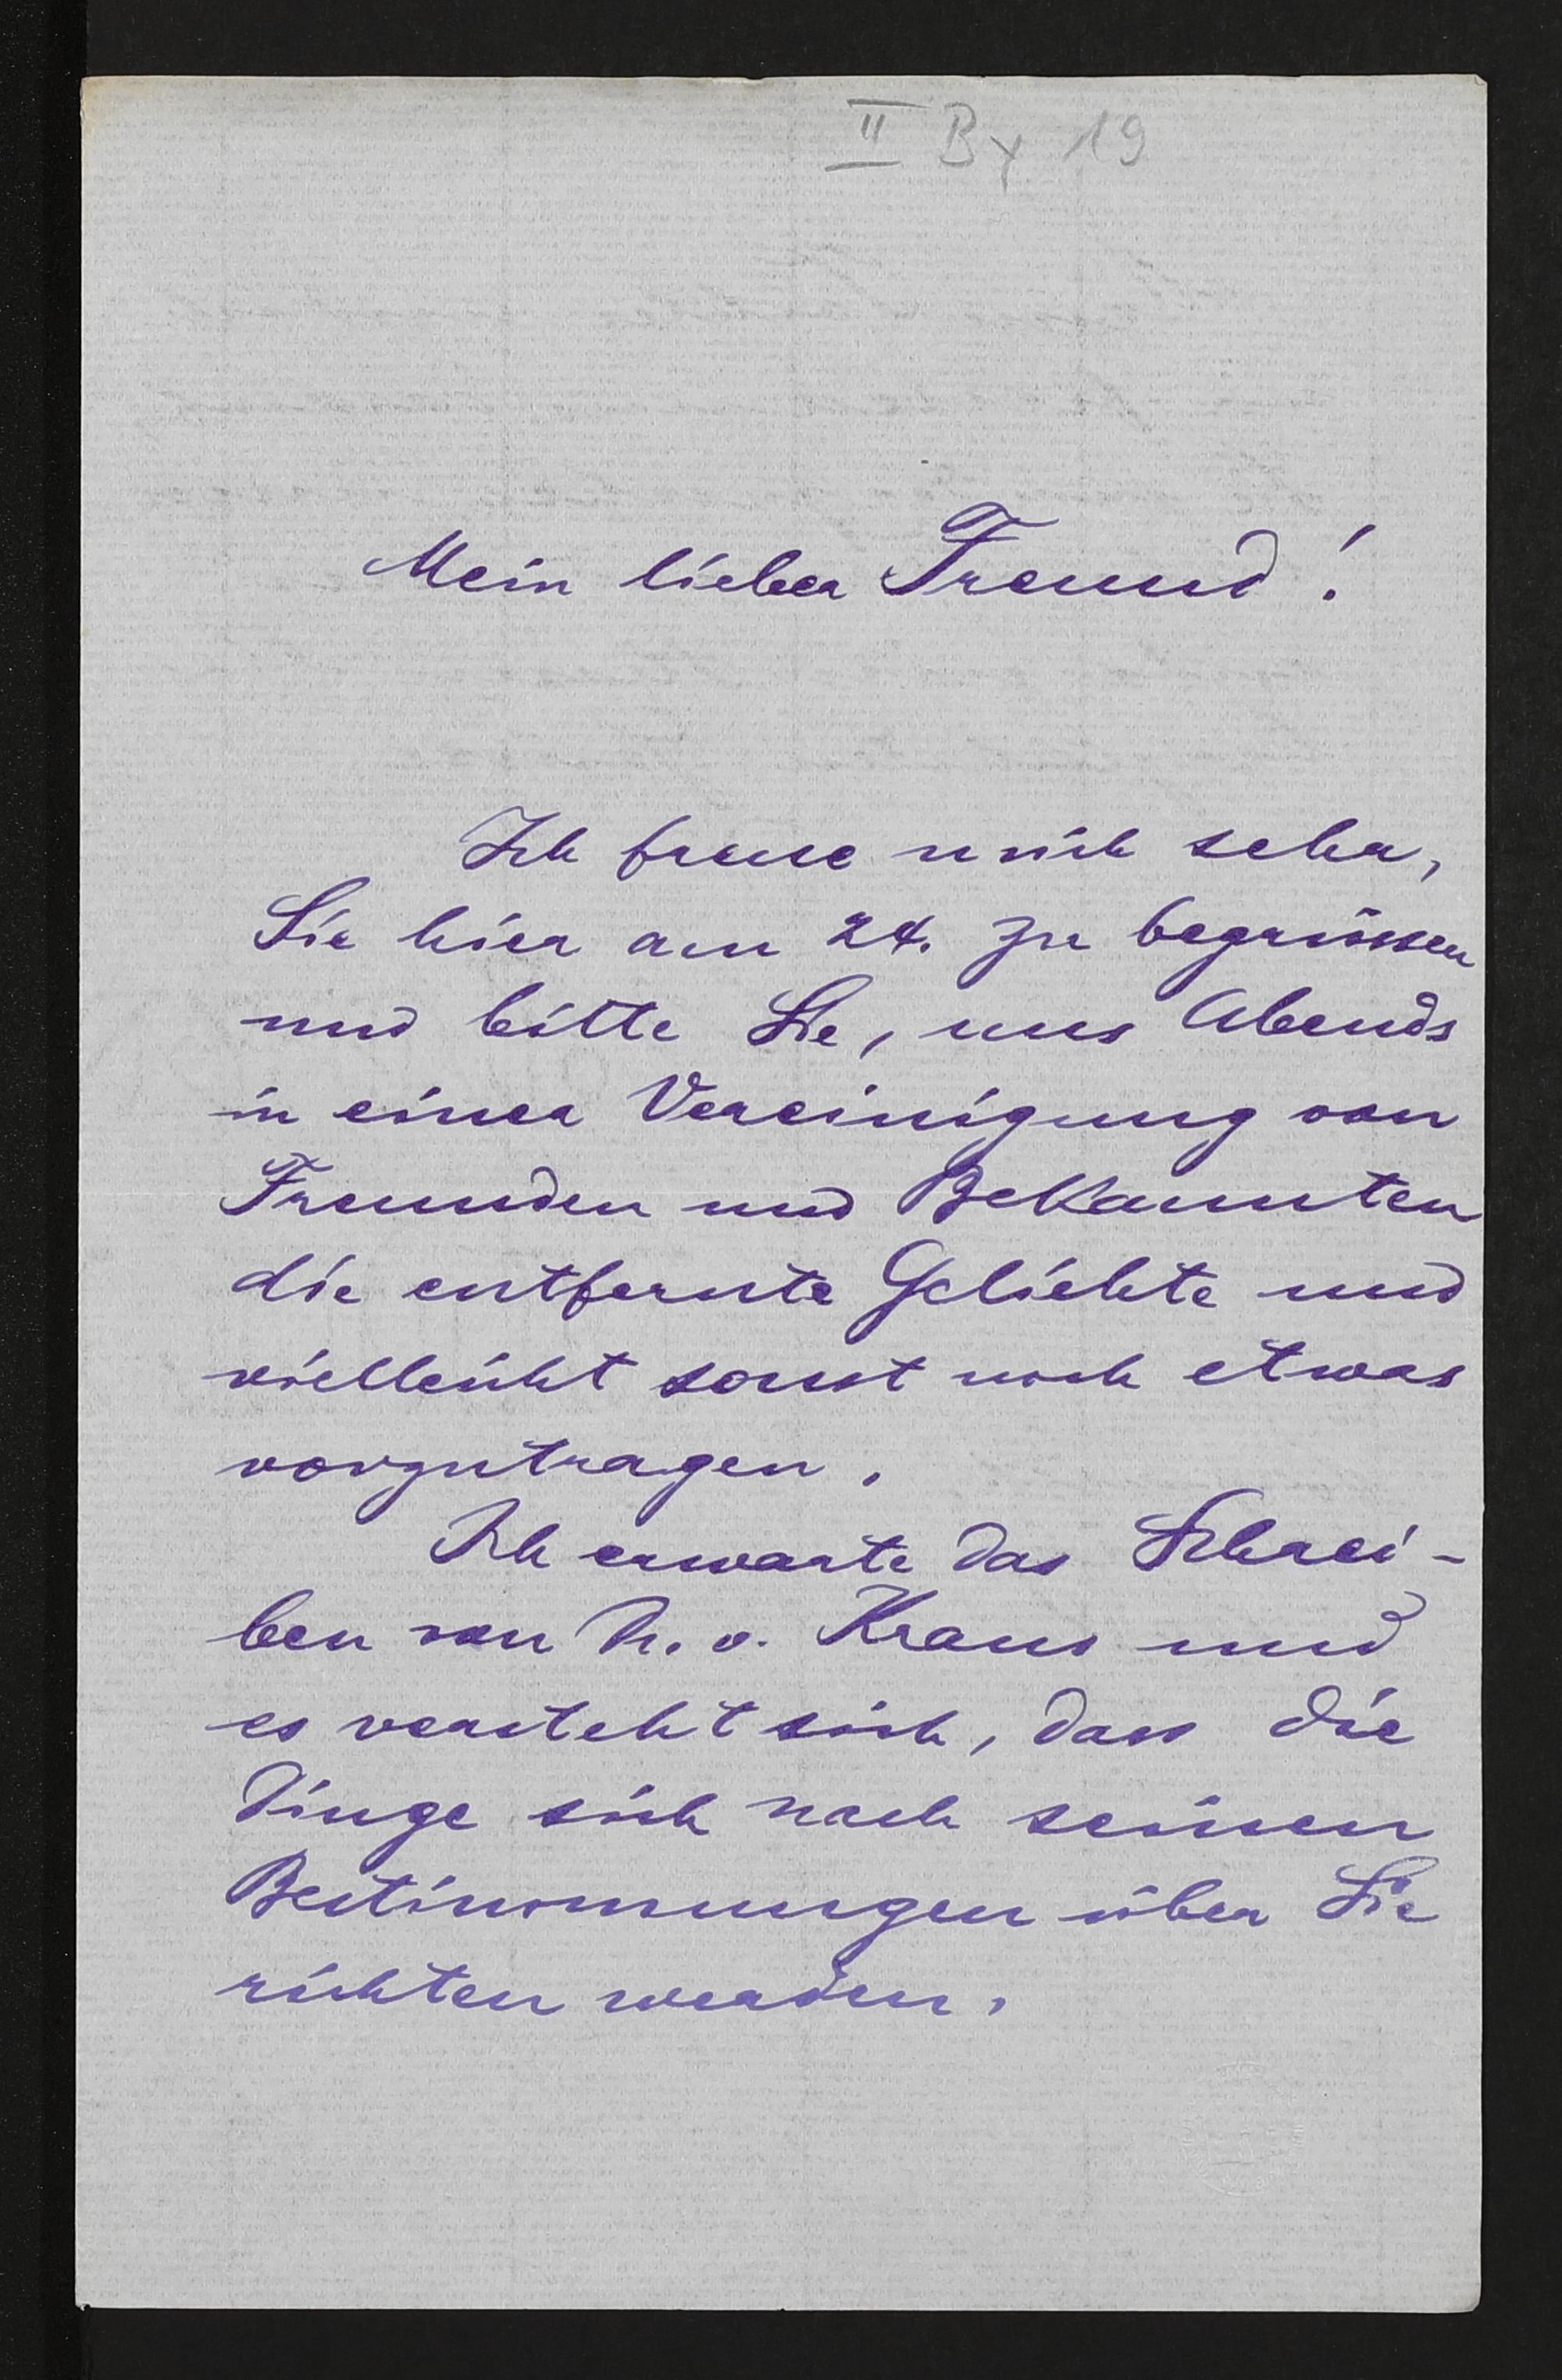 II By 19
Mein lieber Freund!
Ich freue mich sehr,
Sie hier am 24. zu begrüssen
und bitte Sie, uns Abends
in einer Vereinigung von
Freunden und Bekannten
die entfernte Geliebte und
vielleicht sonst noch etwas
vorzutragen.
Ich erwarte das Schrei-
ben von Dr. v. Kraus und
es versteht sich, dass die
Dinge sich nach seinen
Bestimmungen über Sie
richten werden.